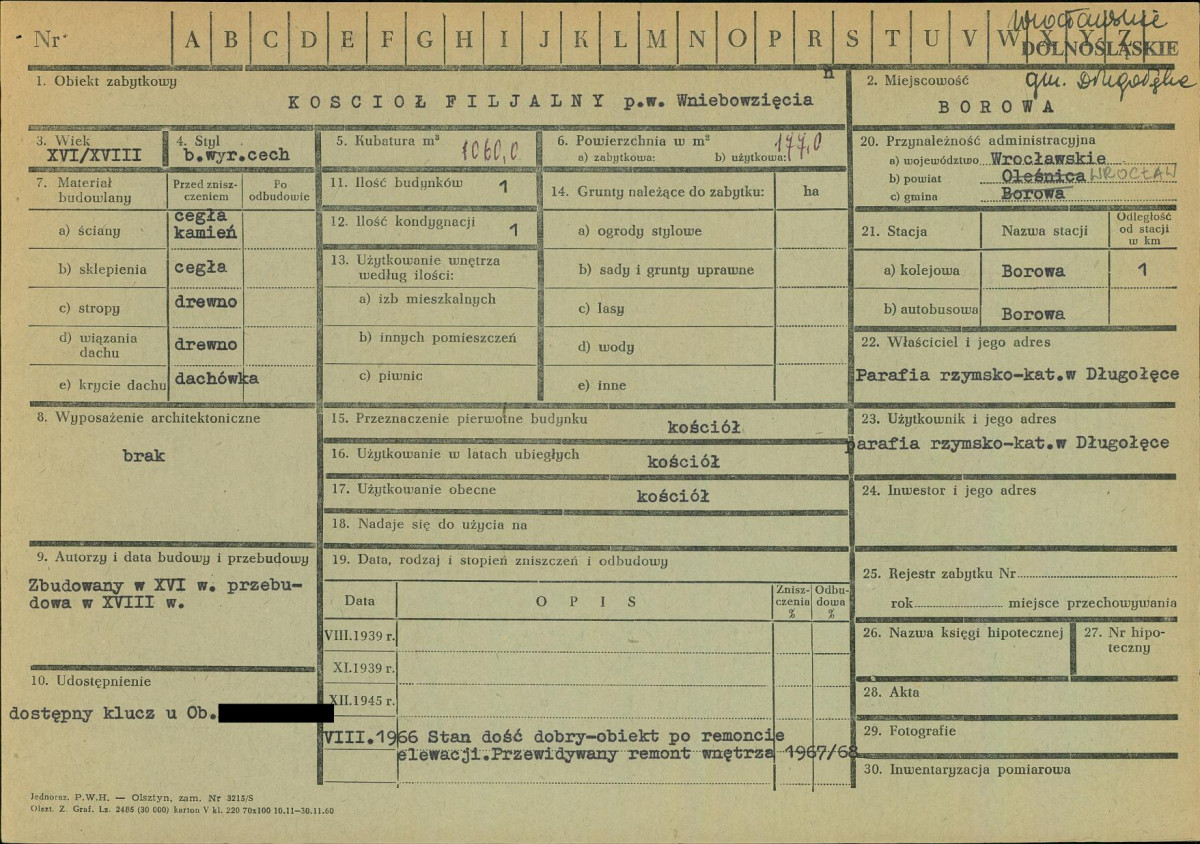 Nr
A B C D E F G H I J K L M N O P R S T U V W X Y Z
wrocławskie
DOLNOŚLĄSKIE
gm. Długołęka
1. Obiekt zabytkowy
n
KOSCIOŁ FILJALNY p.w. Wniebowzięcia
2. Miejscowość
BOROWA
3. Wiek
XVI/XVIII
4. Styl
b.wyr.cech
5. Kubatura m³ 1060,0
6. Powierzchnia w m²
a) zabytkowa: b) użytkowa: 177,0
20. Przynależność administracyjna
a) województwo Wrocławskie
b) powiat Oleśnica WROCŁAW
c) gmina Borowa
7. Materiał budowlany
Przed zniszczeniem
Po odbudowie
a) ściany cegła kamień
b) sklepienia cegła
c) stropy drewno
d) wiązania dachu drewno
e) krycie dachu dachówka
11. Ilość budynków 1
12. Ilość kondygnacji 1
13. Użytkowanie wnętrza według ilości:
a) izb mieszkalnych
b) innych pomieszczeń
c) piwnic
14. Grunty należące do zabytku: ha
a) ogrody stylowe
b) sady i grunty uprawne
c) lasy
d) wody
e) inne
21. Stacja
Nazwa stacji
Odległość od stacji w km
a) kolejowa Borowa 1
b) autobusowa Borowa
22. Właściciel i jego adres
Parafia rzymsko-kat.w Długołęce
8. Wyposażenie architektoniczne
brak
15. Przeznaczenie pierwotne budynku kościół
16. Użytkowanie w latach ubiegłych kościół
17. Użytkowanie obecne kościół
18. Nadaje się do użycia na
23. Użytkownik i jego adres
parafia rzymsko-kat.w Długołęce
24. Inwestor i jego adres
9. Autorzy i data budowy i przebudowy
Zbudowany w XVI w. przebu-
dowa w XVIII w.
19. Data, rodzaj i stopień zniszczeń i odbudowy
Data
OPIS
Zniszczenia %
Odbudowa %
VIII.1939 r.
XI.1939 r.
XII.1945 r.
VIII.1966 Stan dość dobry-obiekt po remoncie
elewacji.Przewidywany remont wnętrza 1967/68
10. Udostępnienie
dostępny klucz u Ob.
25. Rejestr zabytku Nr
rok miejsce przechowywania
26. Nazwa księgi hipotecznej
27. Nr hipoteczny
28. Akta
29. Fotografie
30. Inwentaryzacja pomiarowa
Jednoraz. P.W.H. — Olsztyn, zam. Nr 3215/S
Olszt. Z. Graf. Lz. 2486 (30 000) karton V kl. 220 70x100 10.11—30.11.60